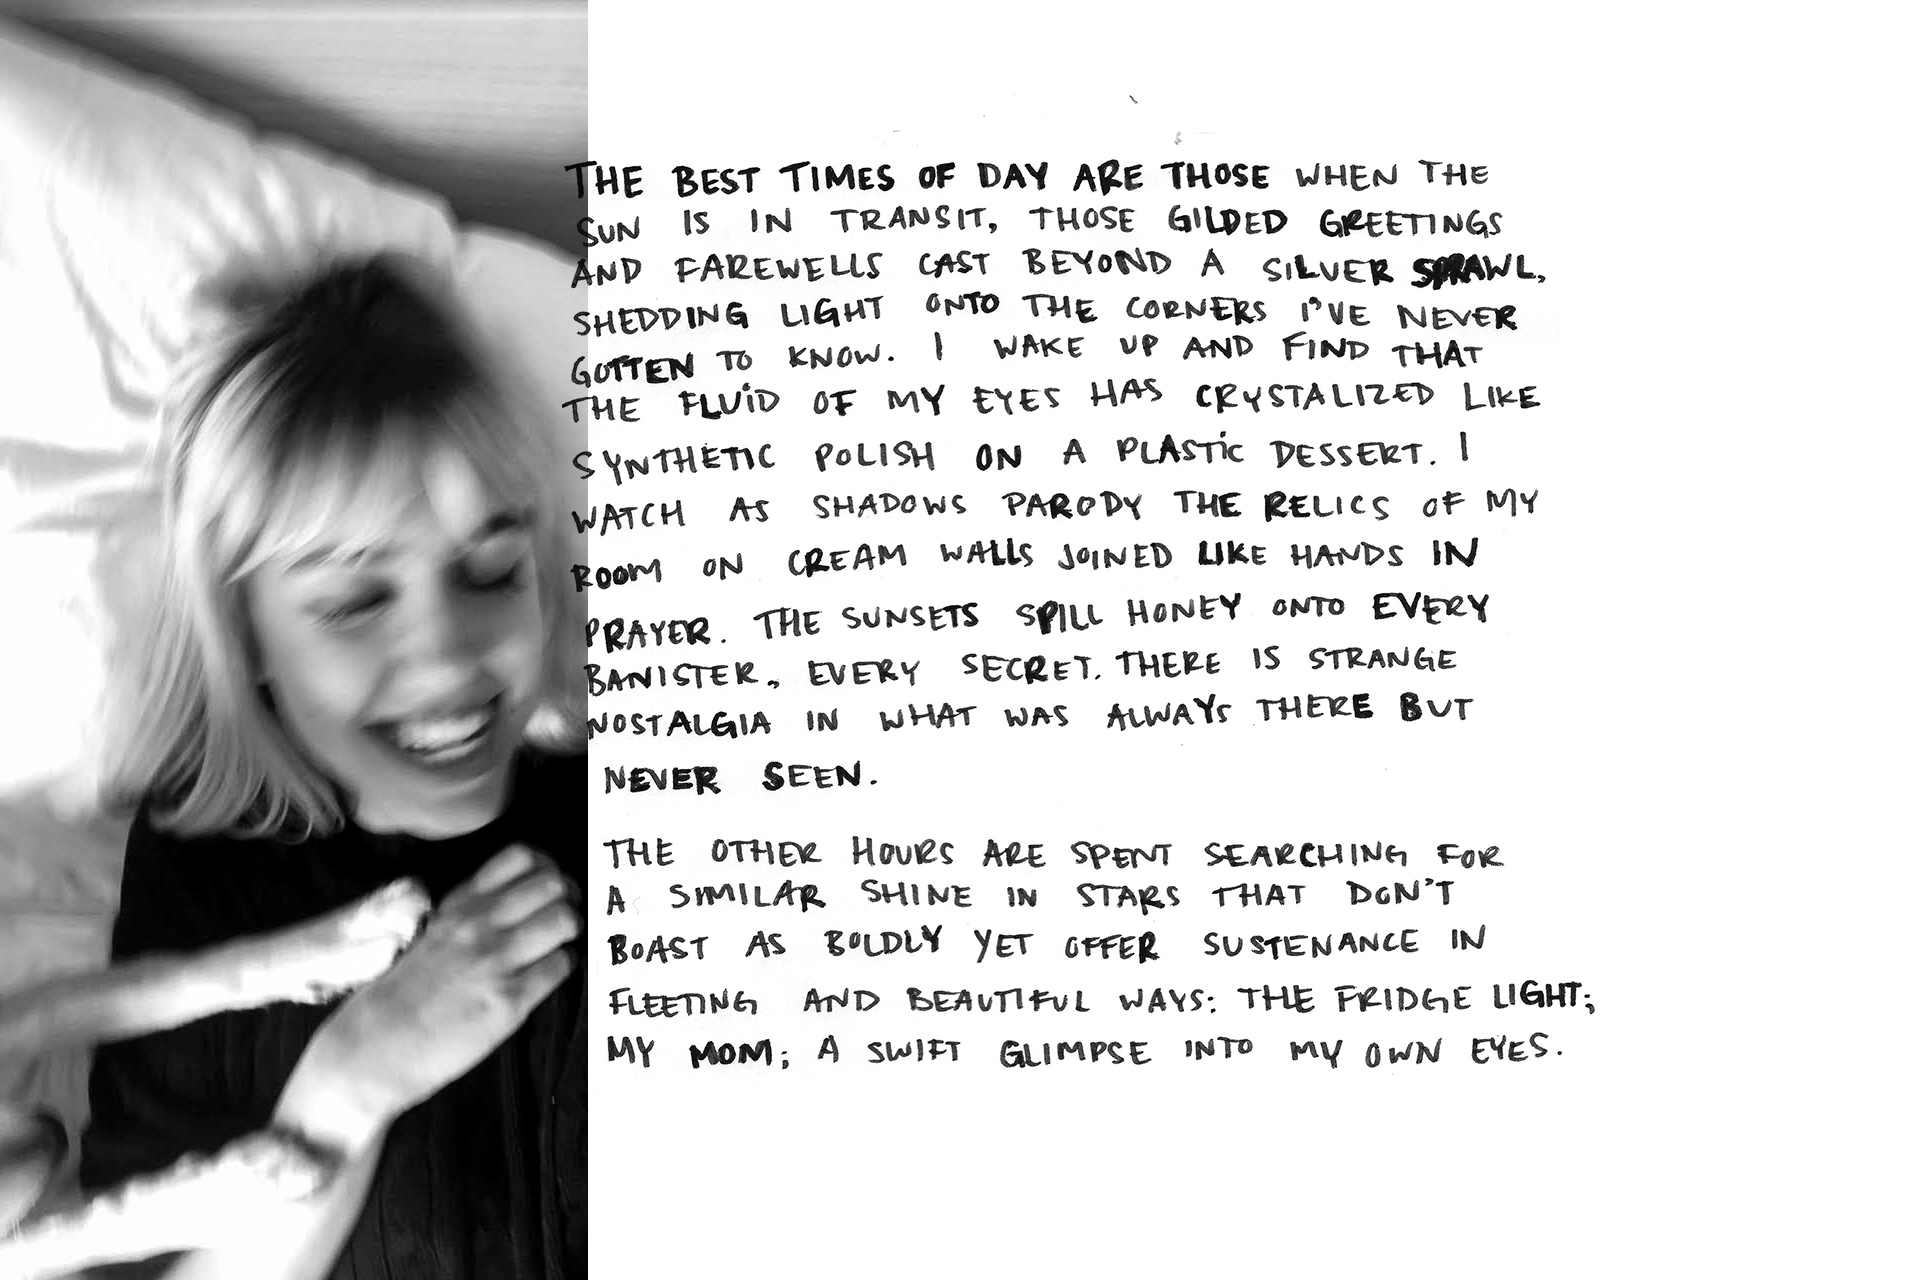 THE BEST TIMES OF DAY ARE THOSE WHEN THE
SUN IS IN TRANSIT, THOSE GILDED GREETINGS
AND FAREWELLS CAST BEYOND A SILVER SPRAWL,
SHEDDING LIGHT ONTO THE CORNERS I'VE NEVER
GOTTEN TO KNOW. I WAKE UP AND FIND THAT
THE FLUID OF MY EYES HAS CRYSTALIZED LIKE
SYNTHETIC POLISH ON A PLASTIC DESSERT. I
WATCH AS SHADOWS PARODY THE RELICS OF MY
ROOM ON CREAM WALLS JOINED LIKE HANDS IN
PRAYER. THE SUNSETS SPILL HONEY ONTO EVERY
BANISTER, EVERY SECRET. THERE IS STRANGE
NOSTALGIA IN WHAT WAS ALWAYS THERE BUT
NEVER SEEN.
THE OTHER HOURS ARE SPENT SEARCHING FOR
A SIMILAR SHINE IN STARS THAT DON'T
BOAST AS BOLDLY YET OFFER SUSTENANCE IN
FLEETING AND BEAUTIFUL WAYS: THE FRIDGE LIGHT;
MY MOM; A SWIFT GLIMPSE INTO MY OWN EYES.